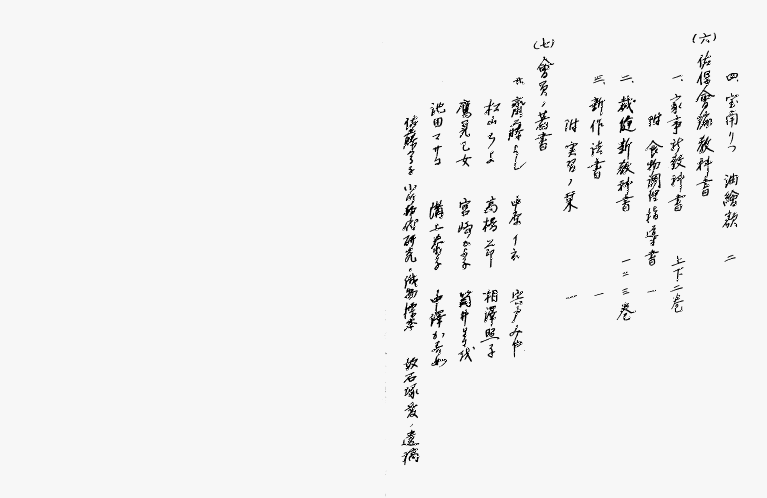 四、宝南りつ 油繪額 二
(六) 佐保會編教科書
一、家事新教科書 上下二巻
附 食物調理指導書 一
二、裁縫新教科書 一二三巻
三、新作法書 一
附 実習ノ栞 一
(七) 會員ノ著書
齋藤よし 中原イネ 宍戸みや
松山ちよ 高橋 相澤照子
鷹見乙女 宮崎 筒井
池田マサコ 溝上泰子 中澤
佐藤 研究・織物標本 故石塚 遺稿